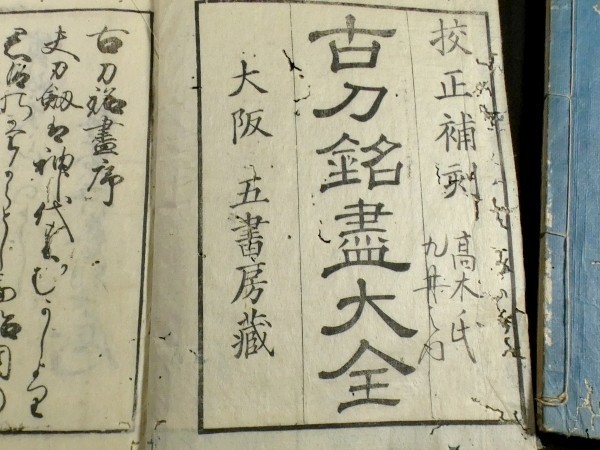 校正補刻
高木氏
九冊之内
古刀銘盡大全
大阪 五書房藏
古刀銘盡序
夫刀劔は神代